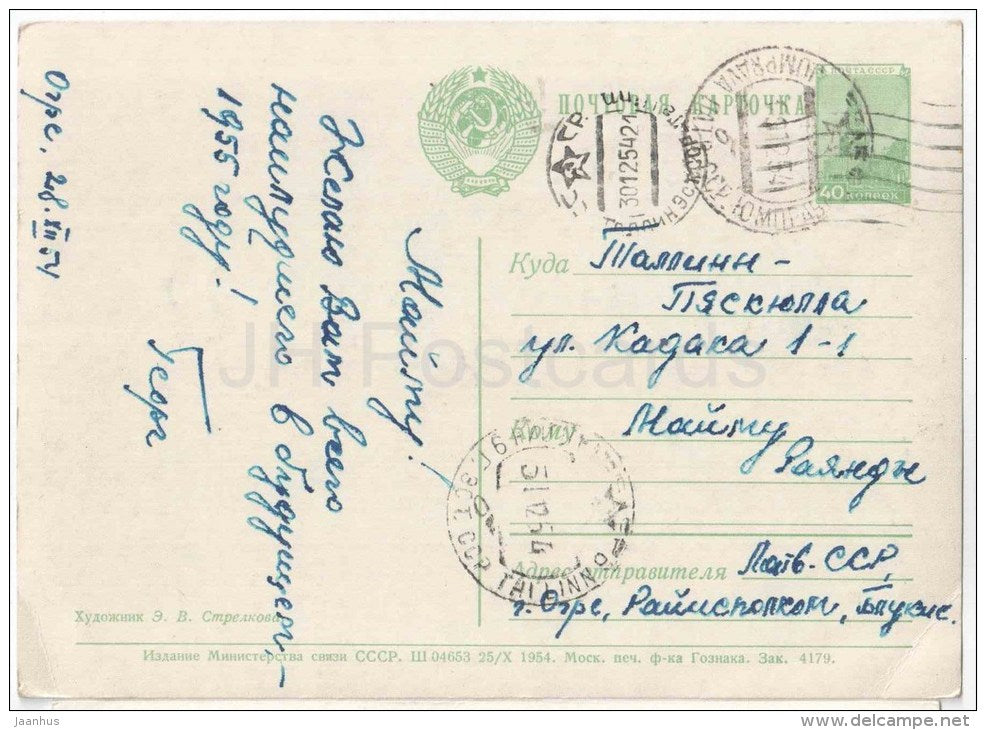 ПОЧТОВАЯ КАРТОЧКА
ПОЧТА СССР
40 КОПЕЕК
301254 21
Огре, 28.XII 54
Майму!
Желаю Вам всего
наилучшего в будущем,
1955 году!
Георг
Куда Таллинн -
Пяскюлла
ул. Кадака 1-1
Кому Майму
Раянды
Адрес отправителя Латв. ССР,
г. Огре, Райисполком,
TALLINN
Художник Э. В. Стрелкова
Издание Министерства связи СССР. Ш 04653 25/X 1954. Моск. печ. ф-ка Гознака. Зак. 4179.
JH Postcards
Jaanhus
www.delcampe.net